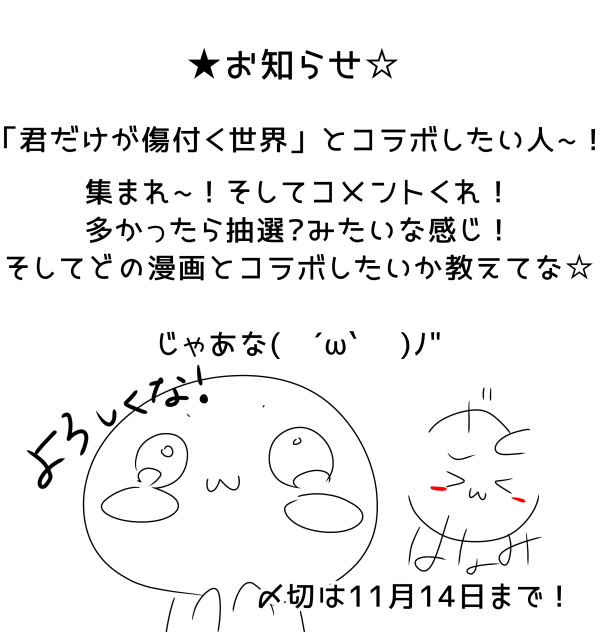 ★お知らせ☆
「君だけが傷付く世界」とコラボしたい人~！
集まれ~！そしてコメントくれ！
多かったら抽選?みたいな感じ！
そしてどの漫画とコラボしたいか教えてな☆
じゃあな(　´ω`　)ﾉ"
よろしくな!
はなみ
〆切は11月14日まで！